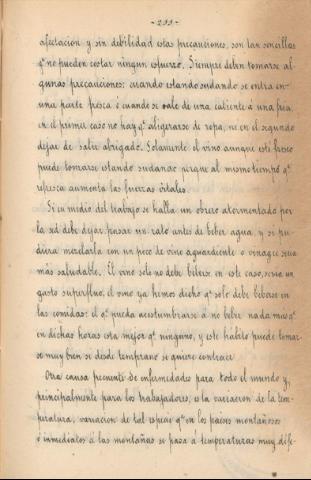 -233-
afectacion y sin debilidad estas precauciones, son tan sencillas
qe no pueden costar ningun esfuerzo. Siempre deben tomarse al-
gunas precauciones: cuando estando sudando se entra en
una parte fresca ó cuando se sale de una caliente á una fria,
en el primer caso no hay qe aligerarse de ropa, ni en el segundo
dejar de salir abrigado. Solamente el vino aunque esté fresco
puede tomarse estando sudando porque al mismo tiempo qe
refresca aumenta las fuerzas vitales.
Si en medio del trabajo se halla un obrero atormentado por
la sed debe dejar pasar un rato antes de beber agua, y si pu-
diera mezclarla con un poco de vino aguardiente o vinagre seria
más saludable. El vino solo no debe beberse en este caso, seria un
gasto superfluo, el vino ya hemos dicho qe solo debe beberse en
las comidas: el qe pueda acostumbrarse á no beber nada mas qe
en dichas horas está mejor qe ninguno, y este habito puede tomar-
se muy bien si desde temprano se quiere contraer.
Otra causa frecuente de enfermedades para todo el mundo y,
principalmente para los trabajadores, es la variacion de la tem-
peratura, variacion de tal especie qe en los paises montañosos
ó inmediatos á las montañas se pasa á temperaturas muy dife-